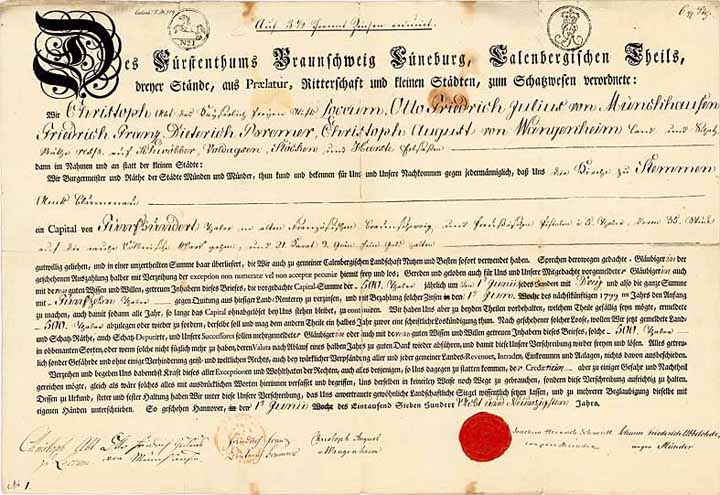 Auf 3½ Procent Zinsen reducirt.
No 1
Des Fürstenthums Braunschweig Lüneburg, Calenbergischen Theils,
dreyer Stände, aus Prælatur, Ritterschaft und kleinen Städten, zum Schatzwesen verordnete:
Wir Christoph Abt des Loccum, Otto Friedrich Julius von Münchhausen
Friedrich Franz Dieterich Bremer, Christoph August von Wangenheim Land- und
auf Schwöbber, Voldagsen, und
dann im Nahmen und an statt der kleinen Städte:
Wir Burgermeister und Räthe der Städte Münden und Münder, thun kund und bekennen für Uns und Unsere Nachkommen gegen jedermänniglich, daß Uns die Kirche zu Stemmen
Amts
ein Capital von Fünfhundert Thaler in alten Französischen Braunschweig. und Preußischen Pistolen à 5 Thaler, deren 35 Stück
auf die Cöllnische Mark gehen, und 21 Karat Grän fein Gold halten
gutwillig geliehen, und in einer unzertheilten Summe baar überliefert, die Wir auch zu gemeiner Calenbergischen Landschaft Nutzen und Besten sofort verwendet haben. Sprechen derowegen gedachte Gläubigerin der
geschehenen Auszahlung halber mit Verzeihung der exception non numeratæ vel non acceptæ pecuniæ hiemit frey und los; Gerreden und geloben auch für Uns und Unsere Mitgedachte vorgemeldeter Gläubigerin auch
mit deren guten Wissen und Willen, getreuen Inhabern dieses Briefes, die vorgedachte Capital-Summe der 500 Thaler jährlich um den 1t Junii jedes Hundert mit Drey und also die ganze Summe
mit Fünfzehn Thaler gegen Quitung aus hiesiger Land-Renterey zu verzinsen, und mit Bezahlung solcher Zinsen den 1t Junii Woche des nächstkünftigen 1799 ten Jahrs den Anfang
zu machen, auch damit sodann alle Jahr, so lange das Capital ohnabgelöset bey Uns stehen bleibet, zu continuiren. Wir haben Uns aber zu beyden Theilen vorbehalten, welchem Theile gefällig seyn mögte, ermeldete
500 Thaler abzulegen oder wieder zu fordern, derselbe soll und mag dem andern Theile ein halbes Jahr zuvor eine schriftliche Loskündigung thun. Nach geschehener solcher Loose, wollen Wir jetzt gemeldete Land-
und Schatz-Räthe, auch Schatz-Deputirte, und Unsere Successores sollen mehrgemeldeter Gläubigerin oder auch mit deren guten Wissen und Willen getreuen Inhabern dieses Briefes, solche 500 Thaler
in obbenannten Sorten, oder wenn solche nicht füglich mehr zu haben, deren Valeur nach Ablauf eines halben Jahrs zu guten Dank wieder abführen, und damit diese Unsere Verschreibung wieder freyen und lösen. Alles getreulich
sonder Gefährde und ohne einige Verhinderung geist- und weltlichen Rechts, auch bey würklicher Verpfändung aller und jeder gemeiner Landes-Revenues, Intraden, Einkommen und Anlagen, nichts davon ausbeschieden.
Verzeihen und begeben Uns daneben Kraft dieses aller Exceptionen und Wohlthaten der Rechten, auch alles desjenigen, so Uns dagegen zu statten kommen, der Creditricin aber zu einiger Gefahr und Nachtheil
gereichen möchte, gleich als wäre solches alles mit ausdrücklichen Worten hierinnen verfasset und begriffen, Uns derselben in keinerley Weise noch Wege zu gebrauchen, sondern diese Verschreibung aufrichtig zu halten.
Dessen zu Urkund, steter und fester Haltung haben Wir unter diese Unsere Verschreibung, das Uns anvertraute gewöhnliche Landschaftliche Siegel wissentlich setzen lassen, und zu mehrerer Beglaubigung dieselbe mit
eigenen Händen unterschrieben. So geschehen Hannover, den 1t Junii Woche des Eintausend Sieben Hundert Acht und Neunzigsten Jahrs.
Christoph Abt zu Loccum
Otto Friedrich Julius von Münchhausen
Friedrich Franz Dieterich Bremer
Christoph August Wangenheim
Joachim Heinrich wegen Münden
Johann Friederich wegen Münder
No 1.